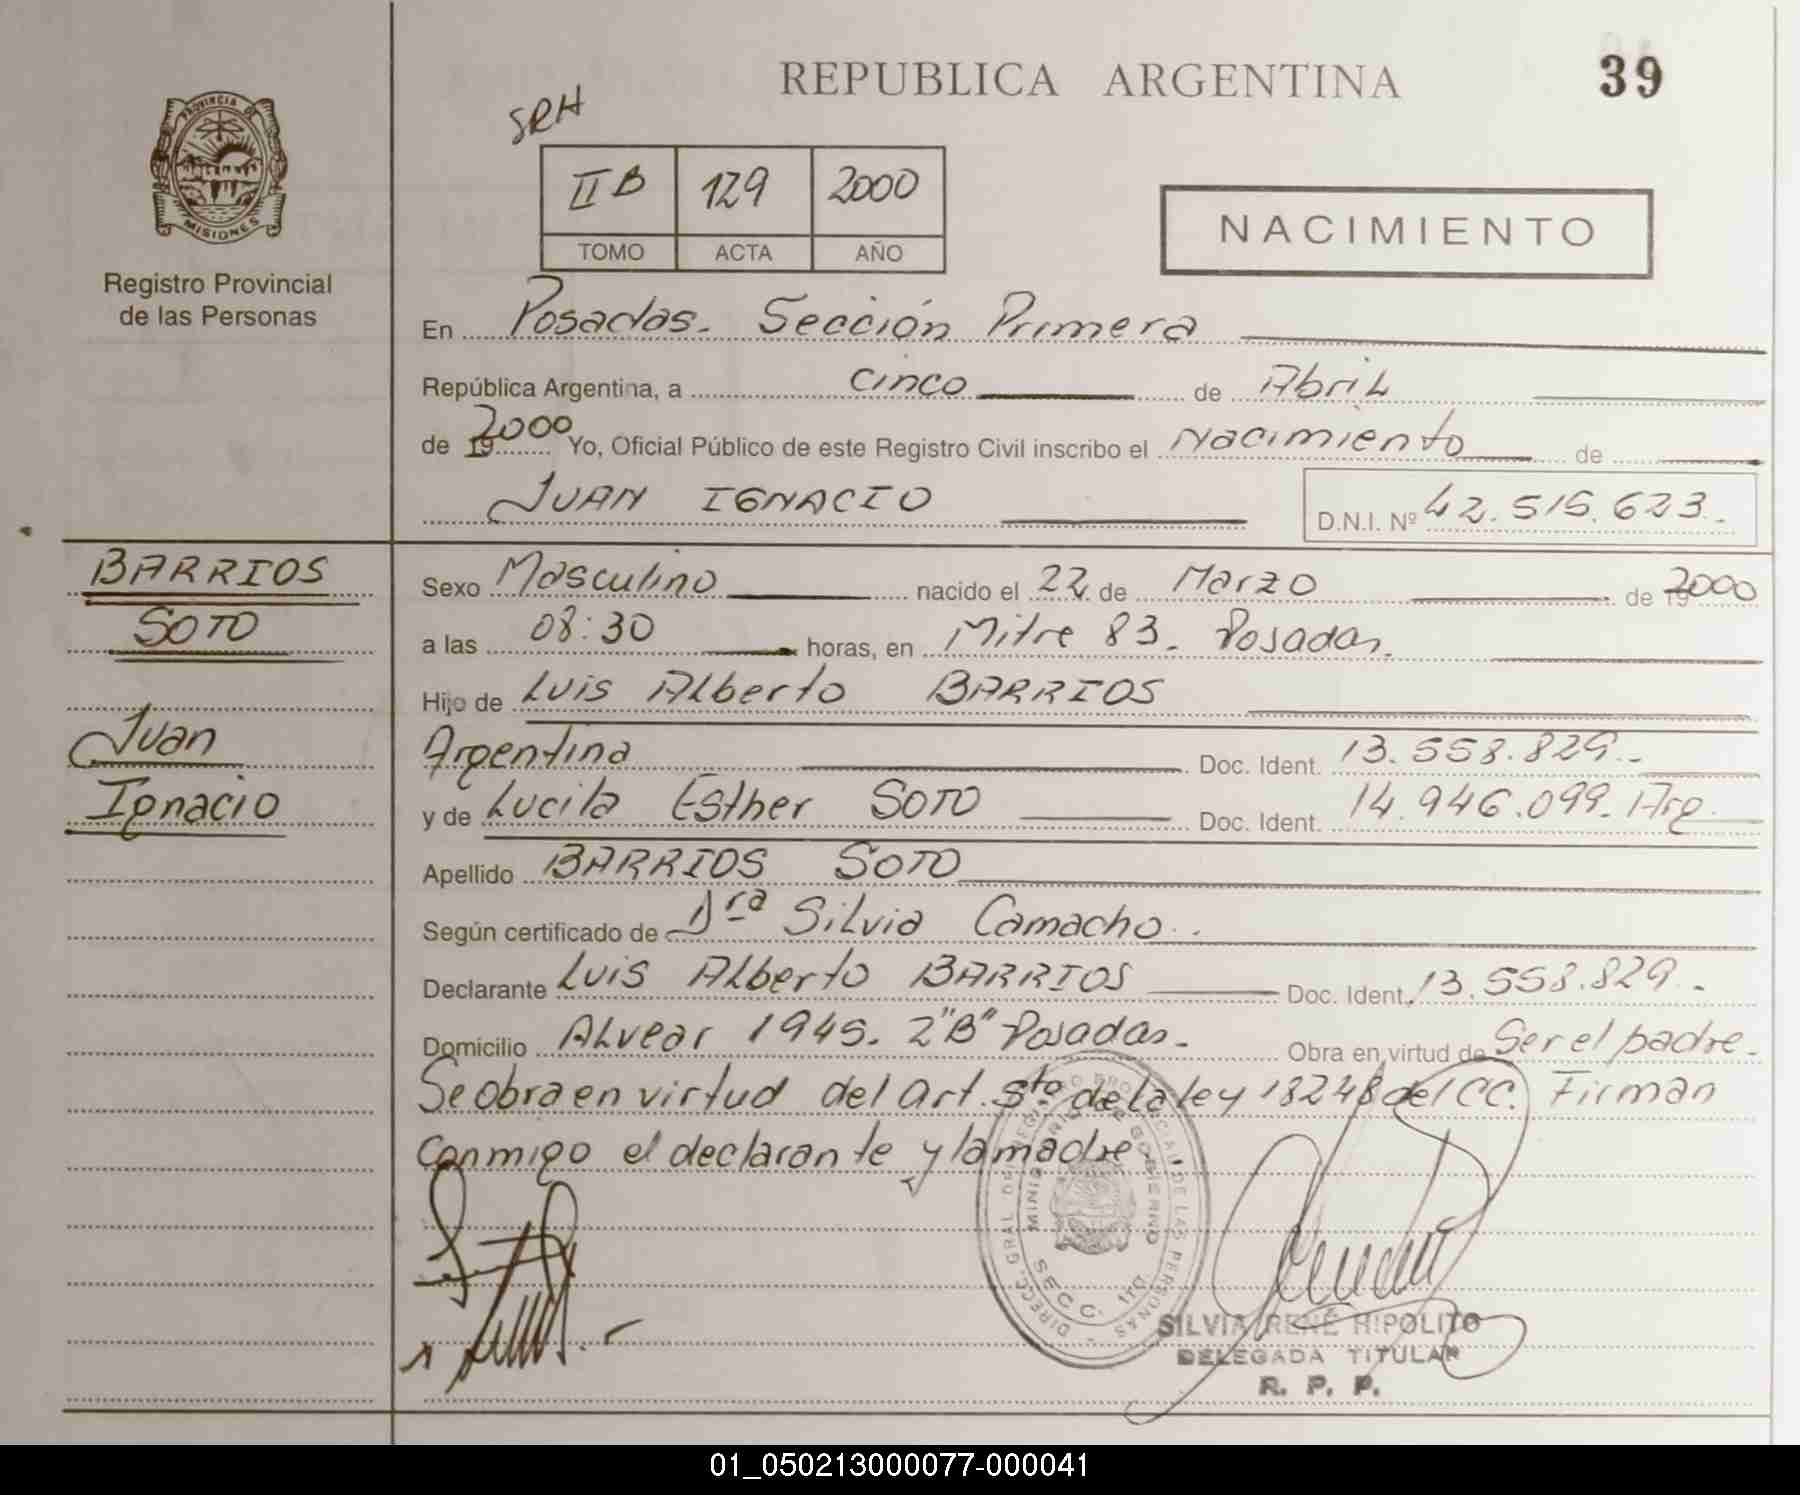 REPUBLICA ARGENTINA
39
SRH
PROVINCIA DE
MISIONES
Registro Provincial
de las Personas
II B 129 2000
TOMO ACTA AÑO
NACIMIENTO
En Posadas. Sección Primera
República Argentina, a cinco de Abril
de 19 2000 Yo, Oficial Público de este Registro Civil inscribo el Nacimiento de
JUAN IGNACIO
D.N.I. Nº 42.515.623.
BARRIOS
SOTO
Juan
Ignacio
Sexo Masculino nacido el 22 de Marzo de 19 2000
a las 08:30 horas, en Mitre 83. Posadas.
Hijo de Luis Alberto BARRIOS
Argentina Doc. Ident. 13.558.829.
y de Lucila Esther SOTO Doc. Ident. 14.946.099. Arg.
Apellido BARRIOS SOTO
Según certificado de Drª Silvia Camacho.
Declarante Luis Alberto BARRIOS Doc. Ident. 13.558.829.
Domicilio Alvear 1945. 2"B" Posadas. Obra en virtud de Ser el padre.
Se obra en virtud del Art. 5to de la ley 18248 del CC. Firman
Conmigo el declarante y la madre.
DIRECC. GRAL. DEL REGISTRO PROVINCIAL DE LAS PERSONAS
MINISTERIO DE GOBIERNO
SECC. 1RO
SILVIA RENE HIPOLITO
DELEGADA TITULAR
R. P. P.
01_050213000077-000041